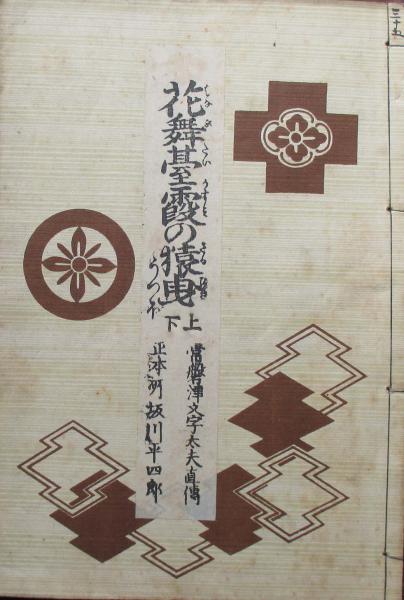 三十五
花舞臺霞の猿曳
うつぼ
上
下
常磐津文字太夫直傳
正本所 板川平四郎